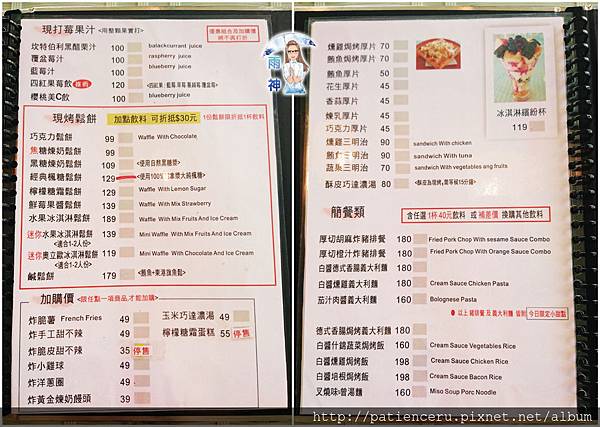 現打莓果汁 <用整顆果實打>
優惠組合及加購價
將不再打折
坎特伯利黑醋栗汁 100 balackcurrant juice
覆盆莓汁 100 raspberry juice
藍莓汁 110 blueberry juice
四紅果莓飲 推薦 120
櫻桃美C飲 100 blueberry juice
現烤鬆餅 加點飲料 可折抵$30元 1份鬆餅限折抵1杯飲料
巧克力鬆餅 99 Waffle With Chocolate
焦糖煉奶鬆餅 99
黑糖煉奶鬆餅 109 <使用日頭黑糖漿>
經典楓糖鬆餅 129
檸檬糖霜鬆餅 129 Waffle With Lemon Sugar
鮮莓果醬鬆餅 129 Waffle With Mix Strawberry
水果冰淇淋鬆餅 189 Waffle With Mix Fruits And Ice Cream
迷你水果冰淇淋鬆餅 139 Mini Waffle With Mix Fruits And Ice Cream
<適合1-2人份>
迷你奧立歐冰淇淋鬆餅 139 Mini Waffle With Chocolate And Ice Cream
<適合1-2人份>
鹹鬆餅 179 <鮪魚+東港旗魚鬆>
加購價 <限任點一項商品,才能加購>
炸脆薯 French Fries 49
炸手工甜不辣 49
炸脆皮甜不辣 35 停售
炸小雞球 49
炸洋蔥圈 49
炸黃金煉奶饅頭 39
玉米巧達濃湯 49
檸檬糖霜蛋糕 55 停售
雨神
燻雞焗烤厚片 70
鮪魚焗烤厚片 70
鮪魚厚片 50
花生厚片 45
香蒜厚片 45
煉乳厚片 45
巧克力厚片 45
燻雞三明治 90 sandwich With chicken
鮪魚三明治 90 sandwich With tuna
蔬果三明治 90 sandwich With vegetables ang fruits
酥皮巧達濃湯 80 <酥皮為現烤,需等候15分鐘>
冰淇淋繽紛杯
119
簡餐類 含任選1杯40元飲料 或 補差價 換購其他飲料
厚切胡麻炸豬排餐 180 Fried Pork Chop With sesame Sauce Combo
厚切橙汁炸豬排餐 180 Fried Pork Chop With Orange Sauce Combo
白醬德式香腸義大利麵 180
白醬燻雞義大利麵 180 Cream Sauce Chicken Pasta
茄汁肉醬義大利麵 160 Bolognese Pasta
以上 豬排餐 及 義大利麵 皆附 今日限定小甜點
德式香腸焗烤義大利麵 180
白醬什錦蔬菜焗烤飯 160 Cream Sauce Vegetables Rice
白醬燻雞焗烤飯 198 Cream Sauce Chicken Rice
白醬培根焗烤飯 198 Cream Sauce Bacon Rice
叉燒味噌湯麵 160 Miso Soup Porc Noodle
http://patienceru.pixnet.net/album